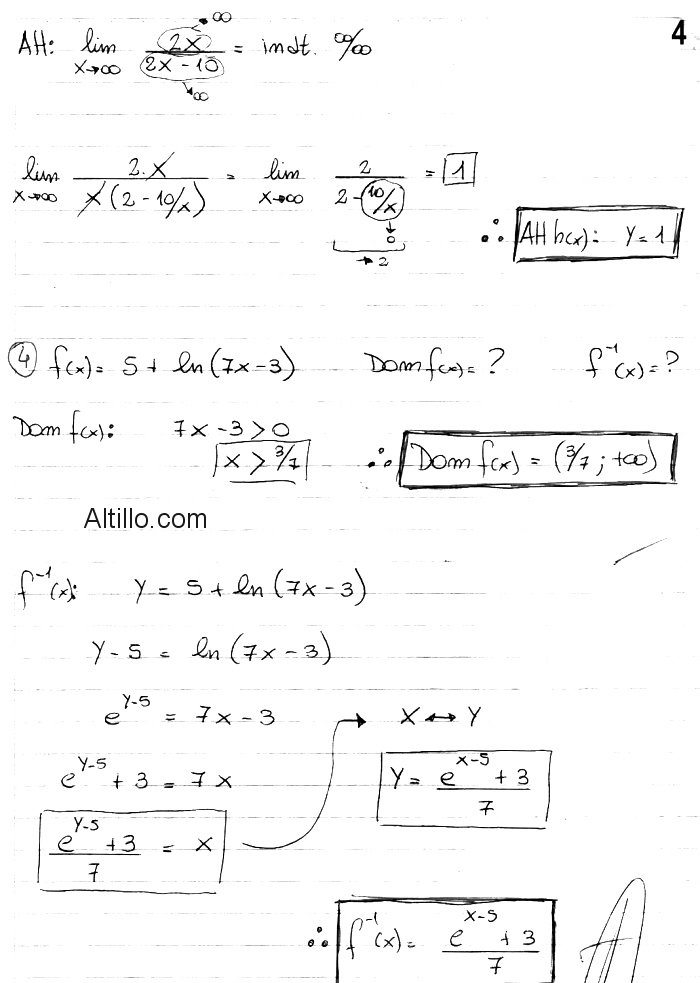 4
→ ∞
AH: lim x→∞ 2x / (2x - 10) = indt. ∞/∞
→ ∞
lim x→∞ 2.x / x(2 - 10/x) = lim x→∞ 2 / (2 - 10/x) = 1
→ 0
→ 2
∴ AH h(x): y = 1
④ f(x) = 5 + ln(7x-3) Dom f(x) = ? f⁻¹(x) = ?
Dom f(x): 7x - 3 > 0
x > 3/7 ∴ Dom f(x) = (3/7 ; +∞)
Altillo.com
f⁻¹(x): y = 5 + ln(7x-3)
y - 5 = ln(7x-3)
e^(y-5) = 7x - 3 → x ↔ y
e^(y-5) + 3 = 7x
y = (e^(x-5) + 3) / 7
(e^(y-5) + 3) / 7 = x
∴ f⁻¹(x) = (e^(x-5) + 3) / 7